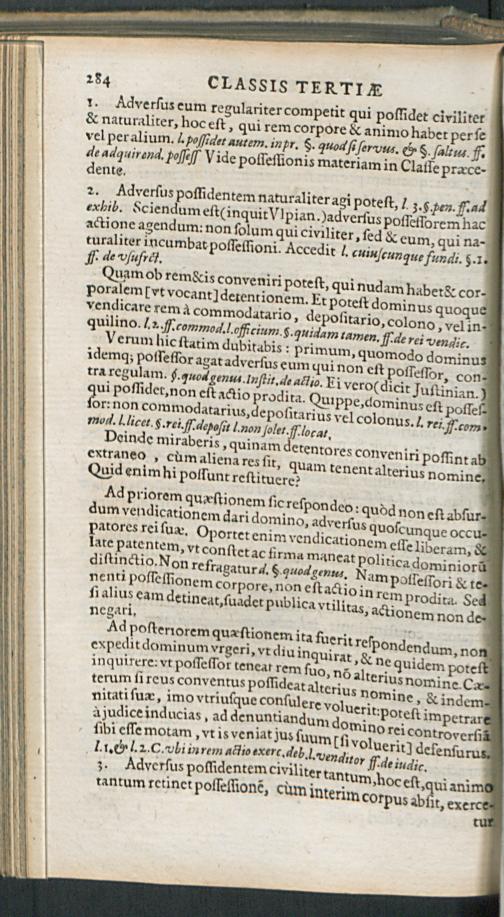 284 CLASSIS TERTIÆ
1. Adverſus eum regulariter competit qui poſſidet civiliter
& naturaliter, hoc eſt, qui rem corpore & animo habet per ſe
vel per alium. l. poſſidet autem. in pr. §. quod ſi ſervus. & §. ſaltus. ff.
de adquirend. poſſeſſ Vide poſſeſſionis materiam in Claſſe præce-
dente.
2. Adverſus poſſidentem naturaliter agi poteſt, l. 3. §. pen. ff. ad
exhib. Sciendum eſt (inquit Vlpian.) adverſus poſſeſſorem hac
actione agendum: non ſolum qui civiliter, ſed & eum, qui na-
turaliter incumbat poſſeſſioni. Accedit l. cuiuſcunque fundi. §. 1.
ff. de vſufrct.
Quam ob rem & is conveniri poteſt, qui nudam habet & cor-
poralem [vt vocant] detentionem. Et poteſt dominus quoque
vendicare rem à commodatario, depoſitario, colono, vel in-
quilino. l. 2. ff. commod. l. officium. §. quidam tamen. ff. de rei vendic.
Verum hic ſtatim dubitabis: primum, quomodo dominus
idemq; poſſeſſor agat adverſus eum qui non eſt poſſeſſor, con-
tra regulam. §. quod genus. Inſtit. de actio. Ei vero (dicit Juſtinian.)
qui poſſidet, non eſt actio prodita. Quippe, dominus eſt poſſeſ-
ſor: non commodatarius, depoſitarius vel colonus. l. rei. ff. com-
mod. l. licet. §. rei. ff. depoſit l. non ſolet. ff. locat.
Deinde miraberis, quinam detentores conveniri poſſint ab
extraneo, cùm aliena res ſit, quam tenent alterius nomine.
Quid enim hi poſſunt reſtituere?
Ad priorem quæſtionem ſic reſpondeo: quòd non eſt abſur-
dum vendicationem dari domino, adverſus quoſcunque occu-
patores rei ſuæ. Oportet enim vendicationem eſſe liberam, &
late patentem, vt conſtet ac firma maneat politica dominiorũ
diſtinctio. Non refragatur d. §. quod genus. Nam poſſeſſori & te-
nenti poſſeſſionem corpore, non eſt actio in rem prodita. Sed
ſi alius eam detineat, ſuadet publica vtilitas, actionem non de-
negari.
Ad poſteriorem quæſtionem ita fuerit reſpondendum, non
expedit dominum vrgeri, vt diu inquirat, & ne quidem poteſt
inquirere: vt poſſeſſor tenear rem ſuo, nõ alterius nomine. Cæ-
terum ſi reus conventus poſſideat alterius nomine, & indem-
nitati ſuæ, imo vtriuſque conſulere voluerit: poteſt impetrare
à judice inducias, ad denuntiandum domino rei controverſiã
ſibi eſſe motam, vt is veniat jus ſuum [ſi voluerit] defenſurus.
l. 1. & l. 2. C. vbi in rem actio exerc. deb. l. venditor ff. de iudic.
3. Adverſus poſſidentem civiliter tantum, hoc eſt, qui animo
tantum retinet poſſeſſionẽ, cùm interim corpus abſit, exerce-
tur